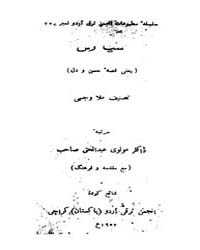 سلسلۂ مطبوعات انجمن ترقی اردو نمبر
سب رس
(یعنی قصۂ حسن و دل)
تصنیف ملا وجہی
مرتبہ
ڈاکٹر مولوی عبدالحق صاحب
(مع مقدمہ و فرہنگ)
شائع کردہ
انجمن ترقی اردو (پاکستان) کراچی